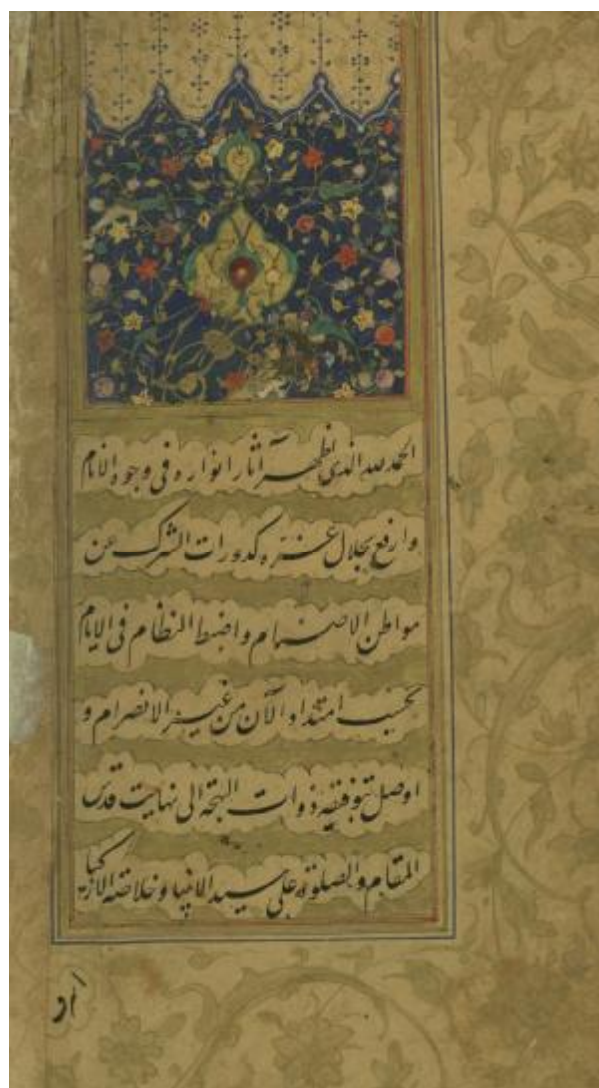 الحمد لله الذی اظهر آثار انواره فی وجوه الانام
و ارفع بجلال عزته کدورات الشرک عن
مواطن الاصنام و اضبط النظام فی الایام
بحسب امتداد الآن من غیر الانصرام و
اوصل بتوفیقه ذوات البتحه الی نهایت قدس
المقام والصلوة علی سید الانبیا و خلاصة الازکیا